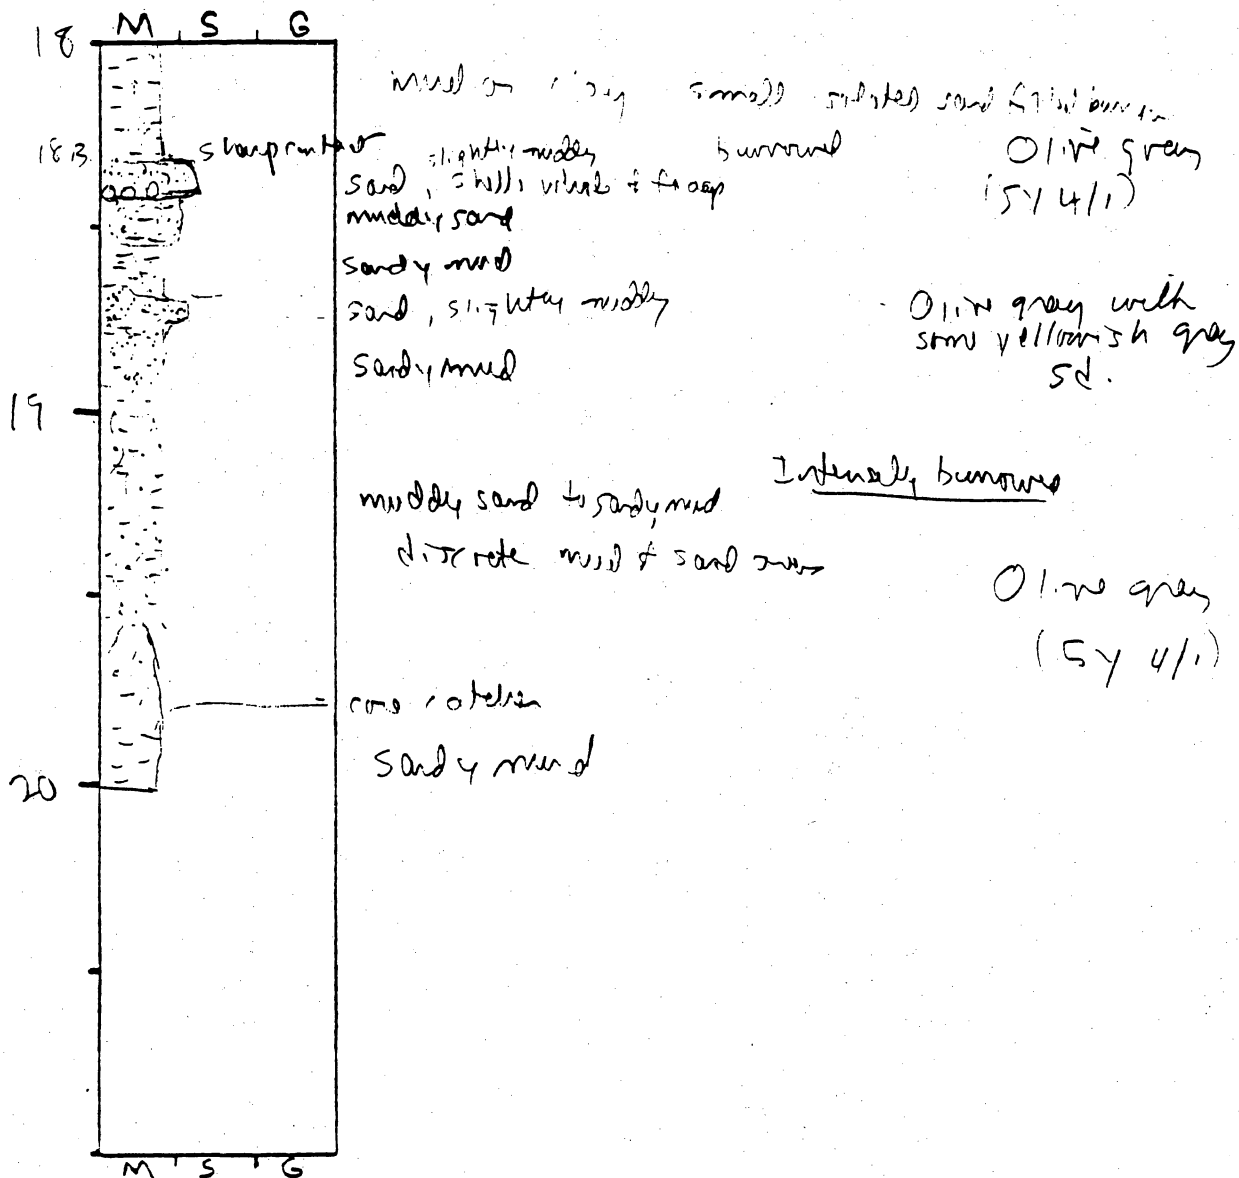 M S G
18
mud small isolated sand filled
18.3 sharp contact slightly muddy burrowed Olive gray
sand, shells (5Y 4/1)
muddy sand
sandy mud
sand, slightly muddy Olive gray with
some yellowish gray
sandy mud sd.
19
Intensely burrowed
muddy sand to sandy mud
discrete mud & sand
Olive gray
(5Y 4/1)
core catcher
sandy mud
20
M S G